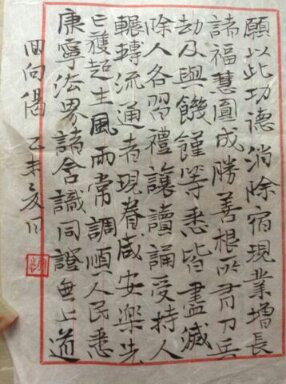 願以此功德消除宿現業增長
諸福慧圓成勝善根所有刀兵
劫及與饑饉等悉皆盡滅
除人各習禮讓讀誦受持人
輾轉流通者現眷咸安樂先
亡獲超生風雨常調順人民悉
康寧法界諸含識同證無上道
回向偈 乙未亥月